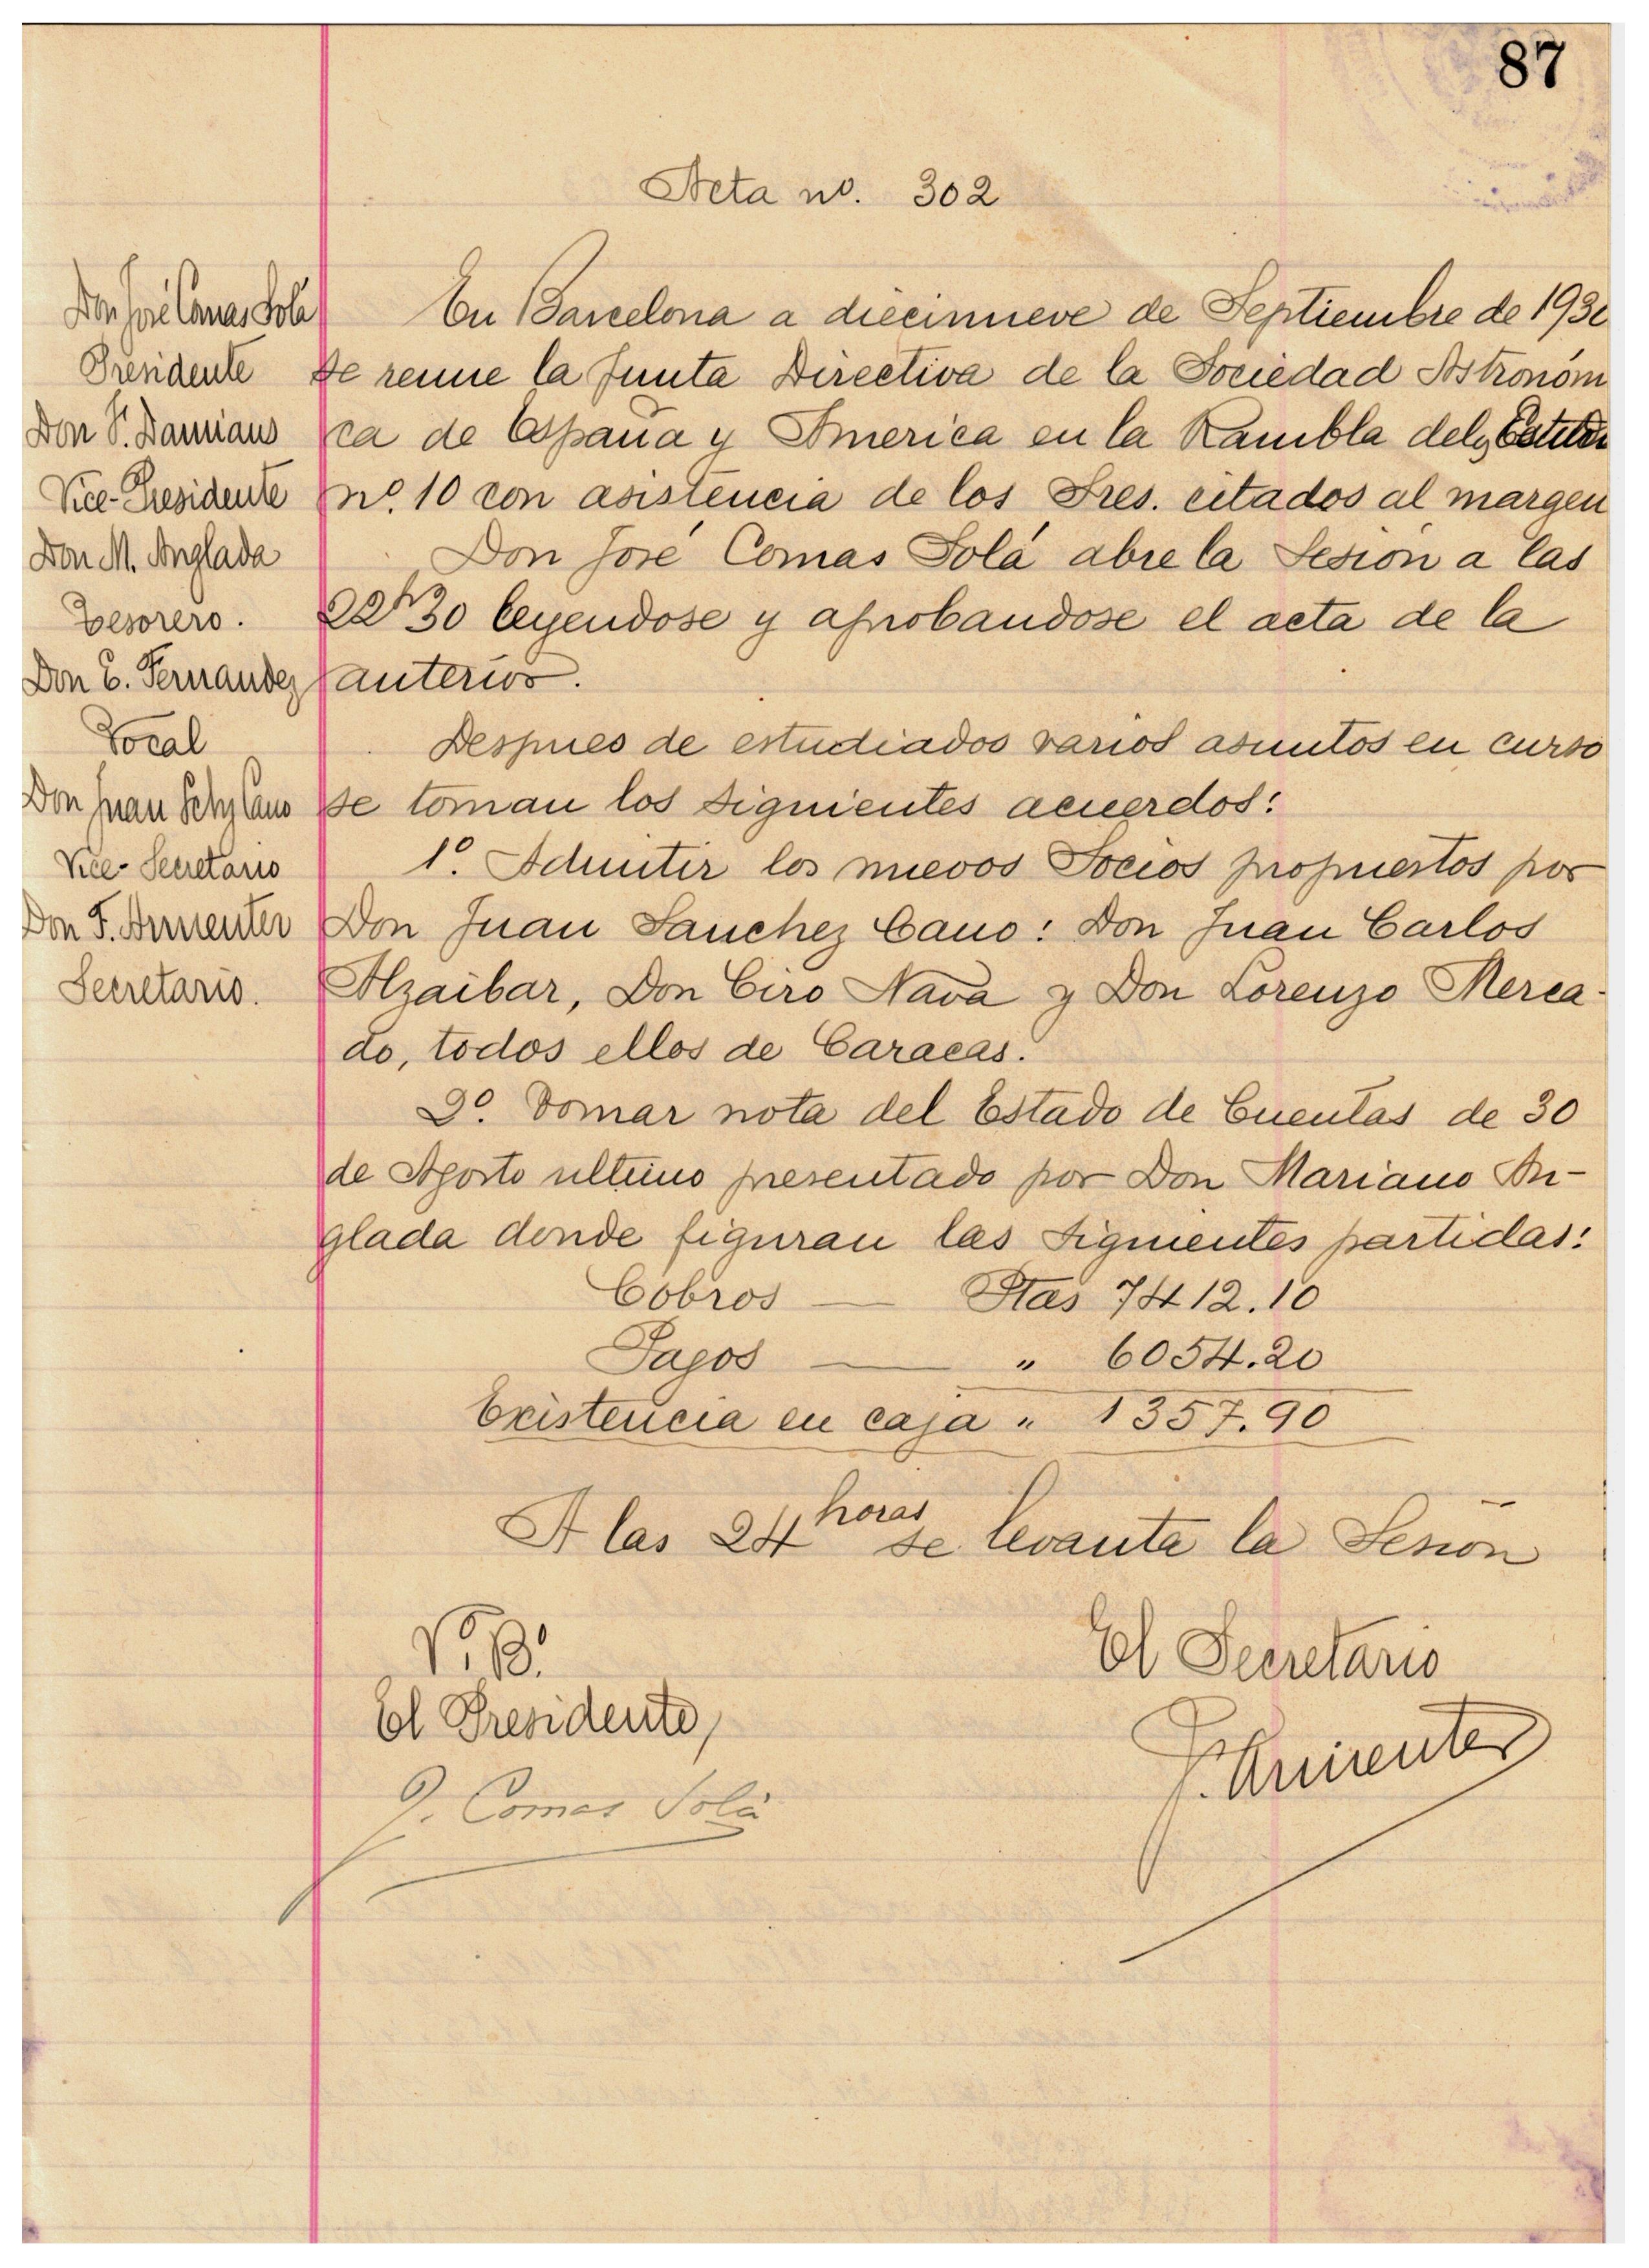 87
Acta nº. 302
Don José Comas Solá
Presidente
Don P. Damians
Vice-Presidente
Don M. Anglada
Tesorero.
Don E. Fernandez
Vocal
Don Juan Schz Cano
Vice-Secretario
Don F. Armenter
Secretario.
En Barcelona a diecinueve de Septiembre de 193
se reune la Junta Directiva de la Sociedad Astronóm
ca de España y America en la Rambla del
nº. 10 con asistencia de los Sres. citados al margen
Don José Comas Solá abre la Sesion a las
22h30 leyendose y aprobandose el acta de la
anterior.
Despues de estudiados varios asuntos en curso
se toman los siguientes acuerdos:
1º. Admitir los nuevos Socios propuestos por
Don Juan Sanchez Cano: Don Juan Carlos
Alzaibar, Don Ciro Nava y Don Lorenzo Merca-
do, todos ellos de Caracas.
2º. Tomar nota del Estado de Cuentas de 30
de Agosto ultimo presentado por Don Mariano An-
glada donde figuran las siguientes partidas:
Cobros — Ptas 7412.10
Pagos — " 6054.20
Existencia en caja " 1357.90
A las 24 horas se levanta la Sesión
Vº. Bº.
El Presidente,
J. Comas Solá
El Secretario
F. Armenter